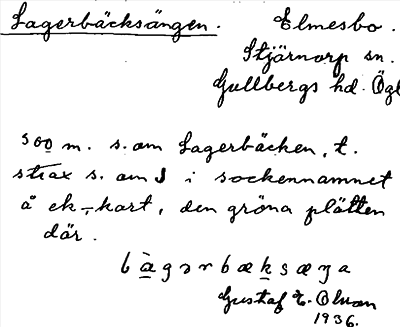 Lagerbäcksängen. Elmesbo.
Stjärnorp sn.
Gullbergs hd. Ögl
500 m. s. om Lagerbäcken, t.
strax s. om J i sockennamnet
å ek.-kart, den gröna plätten
där.
làgərbæksæŋa
Gustaf E.
1936.